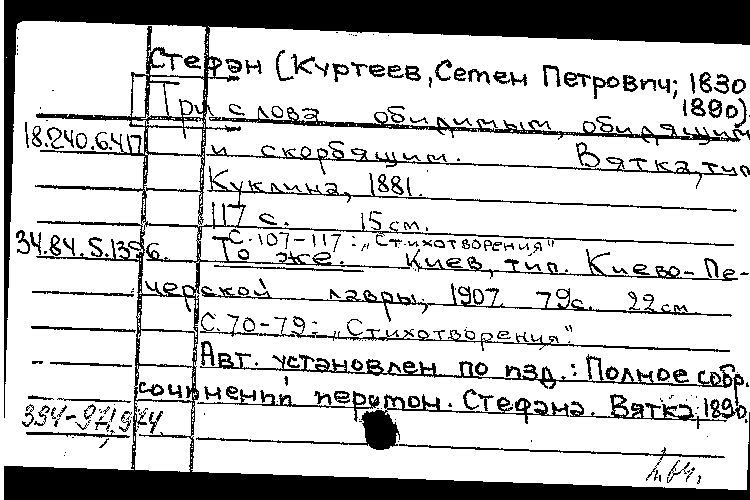 Стефан (Куртеев, Семен Петрович; 1830
1890).
Три слова обидимым, обидящим
18.240.6.417 и скорбящим. Вятка, тип.
Куклина, 1881.
117 с. 15 см.
С. 107-117: „Стихотворения"
34.84.5.1396. То же. Киев, тип. Киево-Пе-
черской лавры, 1907. 79 с. 22 см.
С. 70-79: „Стихотворения".
Авт. установлен по изд.: Полное собр.
сочинений иеритон. Стефана. Вятка, 1890.